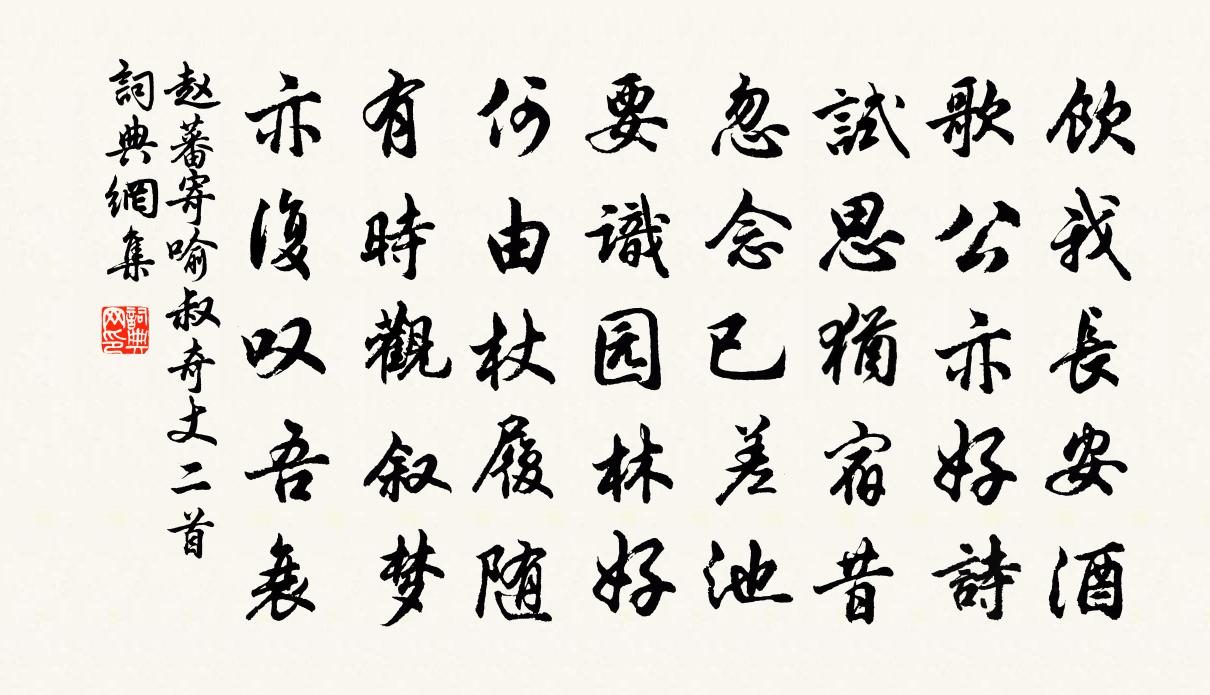 飲我長安酒
歌公亦好詩
試思猶宿昔
忽念已差池
要識园林好
何由杖履随
有時觀叙梦
亦復叹吾衰
赵蕃寄喻叔奇丈二首
詞典網集
詞典网印